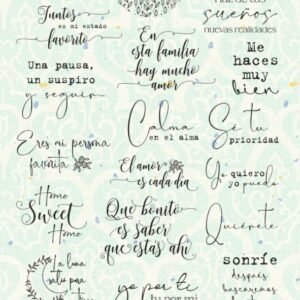 Juntos
es mi estado
favorito
En
esta familia
hay mucho
amor
Haz de tus
sueños
nuevas realidades
Una pausa,
un suspiro
y seguir
Me
haces
muy
bien
Eres mi persona
favorita
Calma
en el alma
Sé tu
prioridad
El amor
es cada día
Yo quiero
yo puedo
Home
Sweet
Home
Que bonito
es saber
que estás ahí
Quiérete
sonríe
después
buscaremos
La luna
salio para
yo por ti
tu por mi